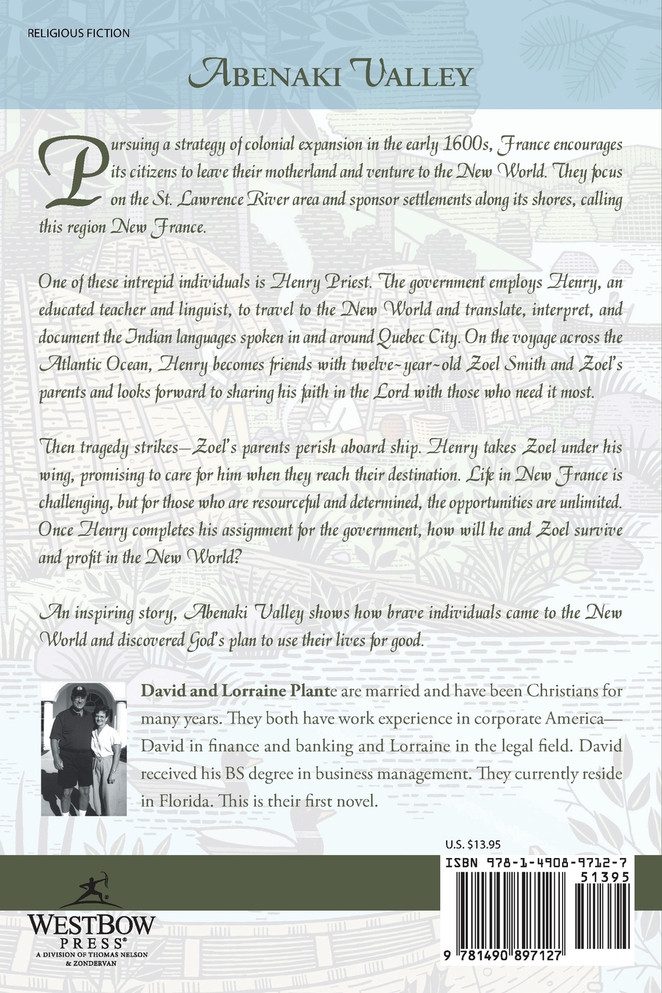 RELIGIOUS FICTION
ABENAKI VALLEY
Pursuing a strategy of colonial expansion in the early 1600s, France encourages
its citizens to leave their motherland and venture to the New World. They focus
on the St. Lawrence River area and sponsor settlements along its shores, calling
this region New France.
One of these intrepid individuals is Henry Priest. The government employs Henry, an
educated teacher and linguist, to travel to the New World and translate, interpret, and
document the Indian languages spoken in and around Quebec City. On the voyage across the
Atlantic Ocean, Henry becomes friends with twelve-year-old Zoel Smith and Zoel's
parents and looks forward to sharing his faith in the Lord with those who need it most.
Then tragedy strikes—Zoel's parents perish aboard ship. Henry takes Zoel under his
wing, promising to care for him when they reach their destination. Life in New France is
challenging, but for those who are resourceful and determined, the opportunities are unlimited.
Once Henry completes his assignment for the government, how will he and Zoel survive
and profit in the New World?
An inspiring story, Abenaki Valley shows how brave individuals came to the New
World and discovered God's plan to use their lives for good.
David and Lorraine Plante are married and have been Christians for
many years. They both have work experience in corporate America—
David in finance and banking and Lorraine in the legal field. David
received his BS degree in business management. They currently reside
in Florida. This is their first novel.
U.S. $13.95
ISBN 978-1-4908-9712-7
51395
9 781490 897127
WESTBOW
PRESS®
A DIVISION OF THOMAS NELSON
& ZONDERVAN